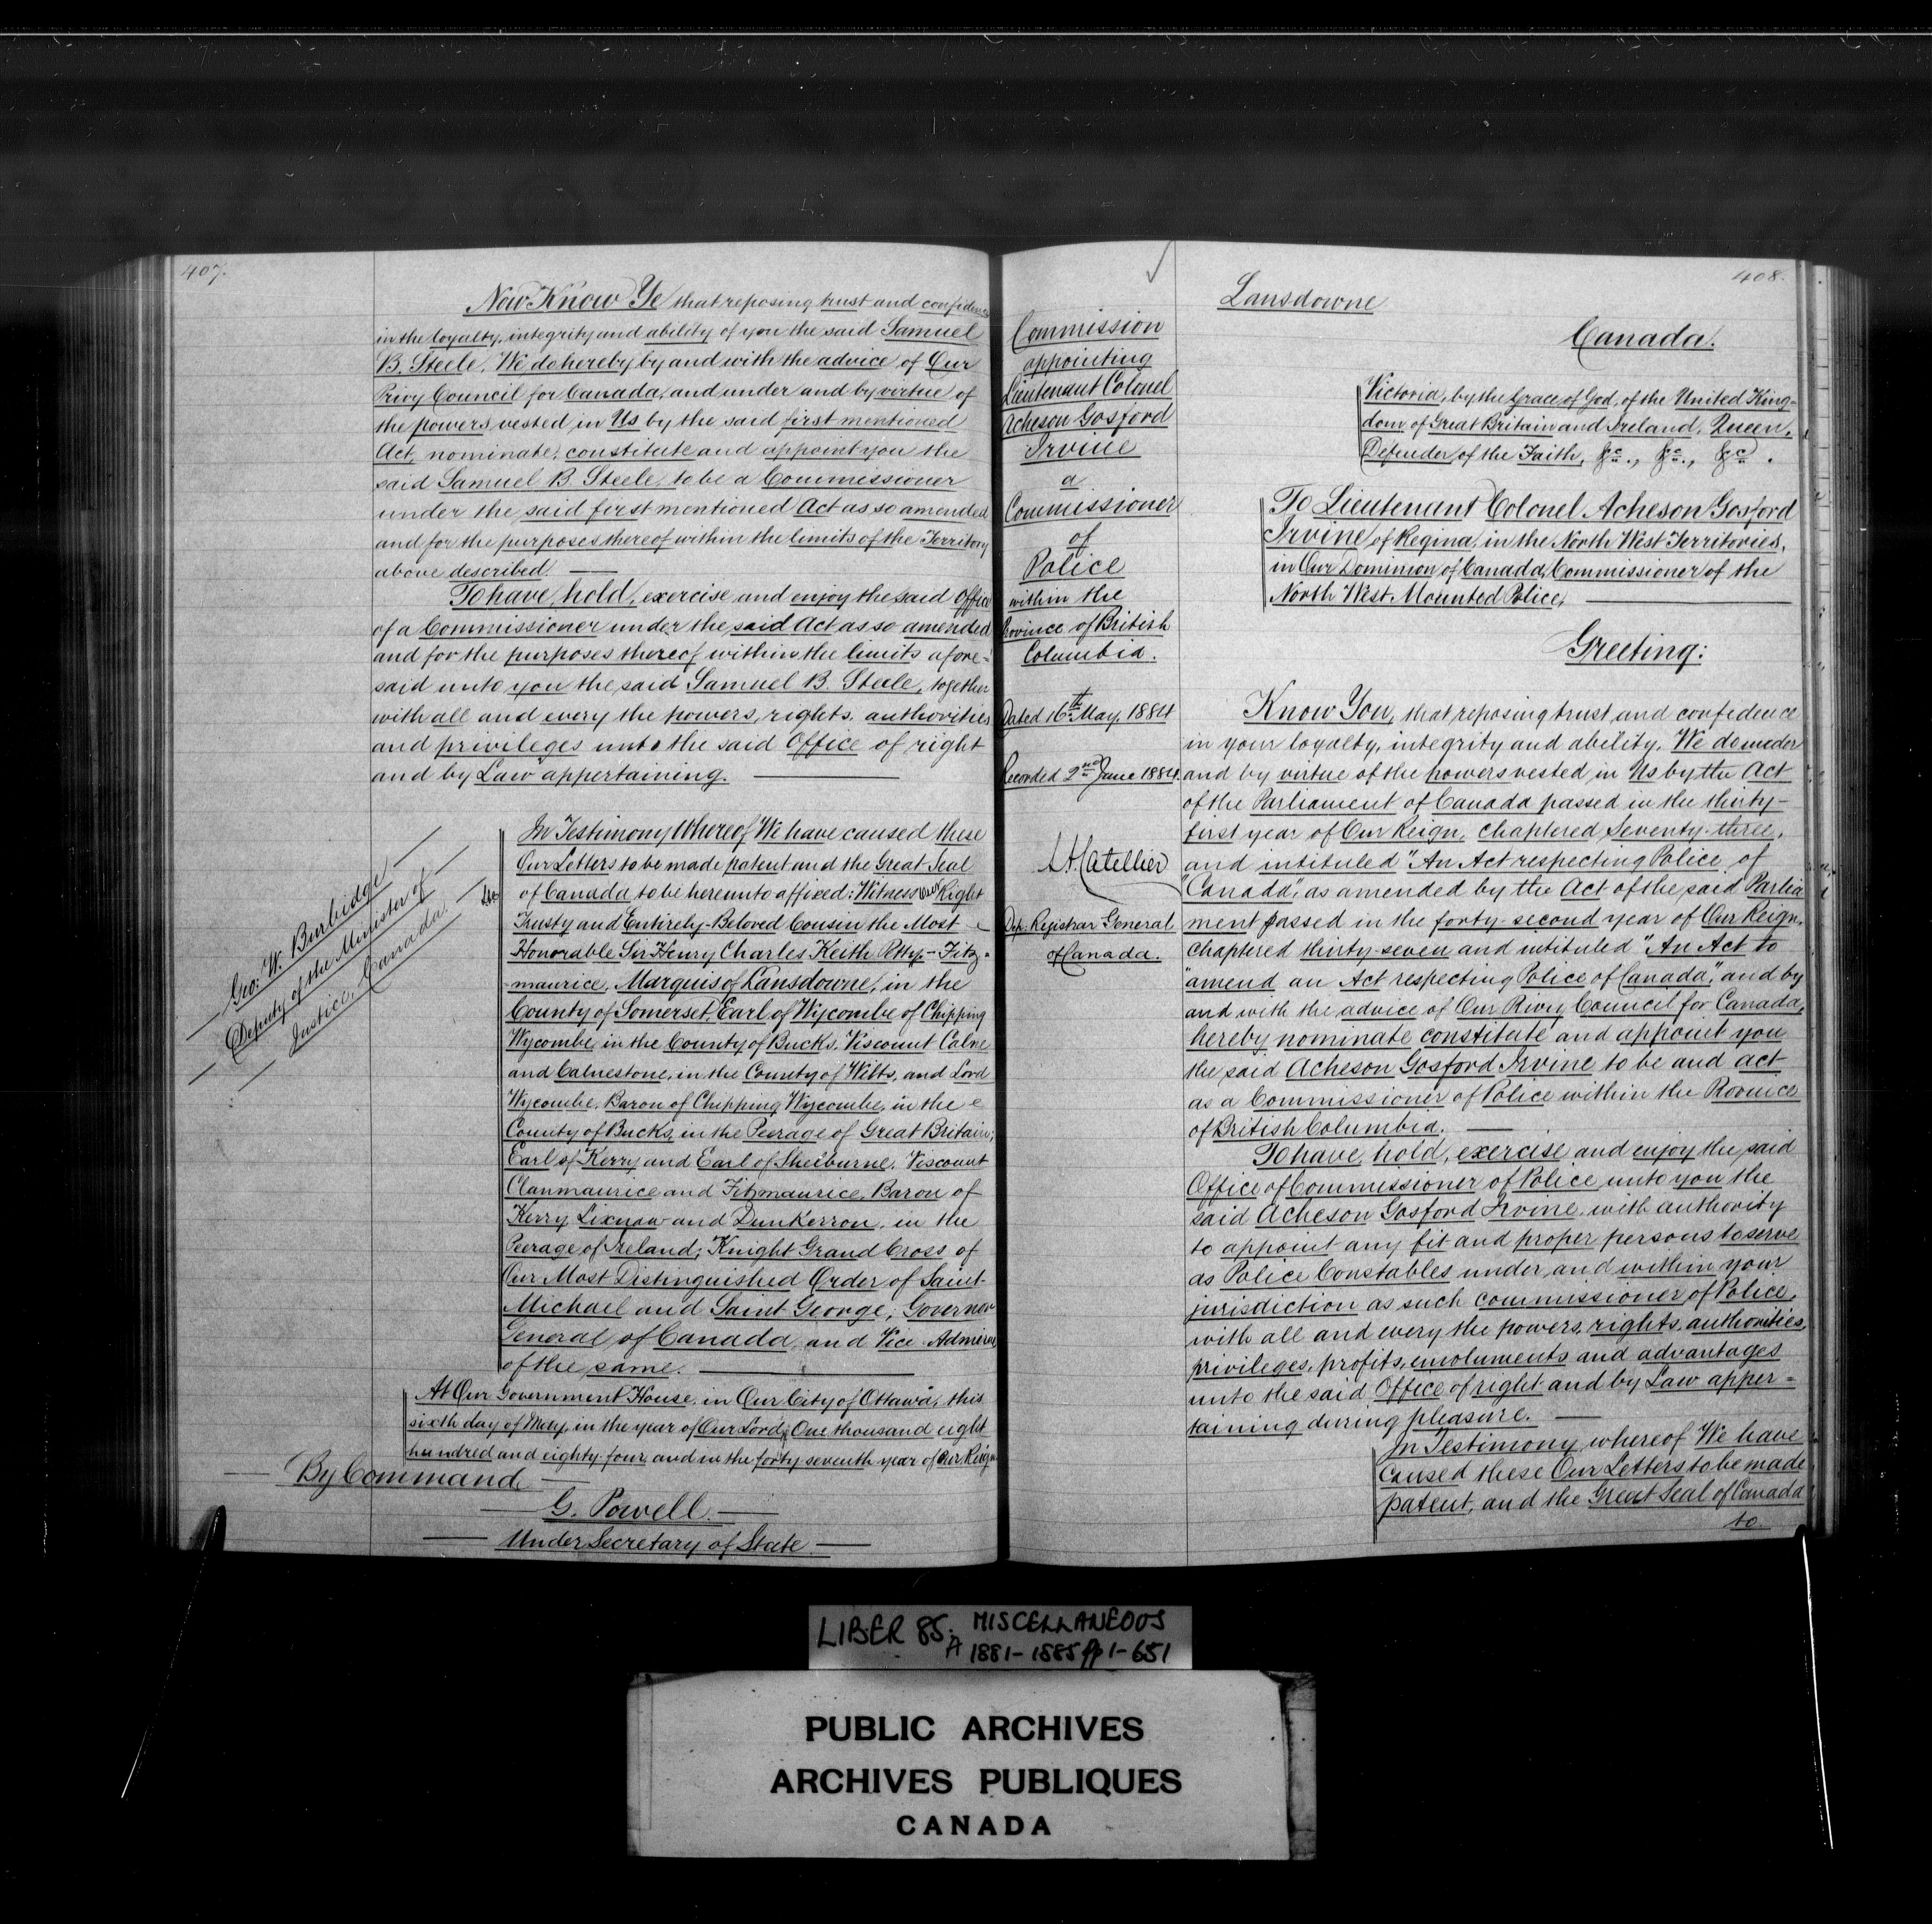 407.
Now Know Ye that reposing trust and confidence
in the loyalty, integrity and ability of you the said Samuel
B. Steele, We do hereby by and with the advice of Our
Privy Council for Canada, and under and by virtue of
the powers vested in Us by the said first mentioned
Act, nominate, constitute and appoint you the
said Samuel B. Steele, to be a Commissioner
under the said first mentioned Act as so amended
and for the purposes thereof within the limits of the Territory
above described.
To have, hold, exercise and enjoy the said Office
of a Commissioner under the said Act as so amended
and for the purposes thereof within the limits afore=
said unto you the said Samuel B. Steele, together
with all and every the powers, rights, authorities
and privileges unto the said Office of right
and by Law appertaining.
Geo: W. Burbidge
Deputy of the Minister of
Justice, Canada.
In Testimony Whereof We have caused these
Our Letters to be made patent and the Great Seal
of Canada to be hereunto affixed: Witness Our Right
Trusty and Entirely-Beloved Cousin the Most
Honorable Sir Henry Charles Keith Petty-Fitz=
maurice, Marquis of Lansdowne, in the
County of Somerset, Earl of Wycombe of Chipping
Wycombe in the County of Bucks, Viscount Calne
and Calnestone, in the County of Wilts, and Lord
Wycombe, Baron of Chipping Wycombe, in the
County of Bucks, in the Peerage of Great Britain;
Earl of Kerry and Earl of Shelburne, Viscount
Clanmaurice and Fitzmaurice, Baron of
Kerry Lixnaw and Dunkerron, in the
Peerage of Ireland; Knight Grand Cross of
Our Most Distinguished Order of Saint
Michael and Saint George, Governor
General of Canada, and Vice-Admiral
of the same.
At Our Government House, in Our City of Ottawa, this
sixth day of May, in the year of Our Lord, One thousand eight
hundred and eighty four and in the forty seventh year of Our Reign
By Command
G. Powell.
Under Secretary of State
Commission
appointing
Lieutenant Colonel
Acheson Gosford
Irvine
a
Commissioner
of
Police
within the
Province of British
Columbia.
Dated 16th May, 1884
Recorded 2nd June 1884.
Catellier
Dep: Registrar General
of Canada.
408.
Lansdowne
Canada.
Victoria, by the Grace of God, of the United King=
dom of Great Britain and Ireland, Queen,
Defender of the Faith, &c., &c., &c.
To Lieutenant Colonel Acheson Gosford
Irvine of Regina, in the North West Territories,
in Our Dominion of Canada, Commissioner of the
North West Mounted Police,
Greeting:
Know You, that reposing trust and confidence
in your loyalty, integrity and ability, We do under
and by virtue of the powers vested in Us by the Act
of the Parliament of Canada passed in the thirty-
first year of Our Reign, chaptered Seventy-three,
and intituled "An Act respecting Police of
"Canada", as amended by the Act of the said Parlia
ment passed in the forty-second year of Our Reign,
chaptered thirty-seven and intituled "An Act to
"amend an Act respecting Police of Canada", and by
and with the advice of Our Privy Council for Canada,
hereby nominate constitute and appoint you
the said Acheson Gosford Irvine to be and act
as a Commissioner of Police within the Province
of British Columbia.
To have, hold, exercise and enjoy the said
Office of Commissioner of Police unto you the
said Acheson Gosford Irvine, with authority
to appoint any fit and proper persons to serve
as Police Constables under and within your
jurisdiction as such commissioner of Police,
with all and every the powers, rights, authorities,
privileges, profits, emoluments and advantages
unto the said Office of right and by Law apper=
taining during pleasure.
In Testimony whereof We have
caused these Our Letters to be made
patent, and the Great Seal of Canada
to
LIBER 85. MISCELLANEOUS
A 1881-1885 pp 1-651
PUBLIC ARCHIVES
ARCHIVES PUBLIQUES
CANADA